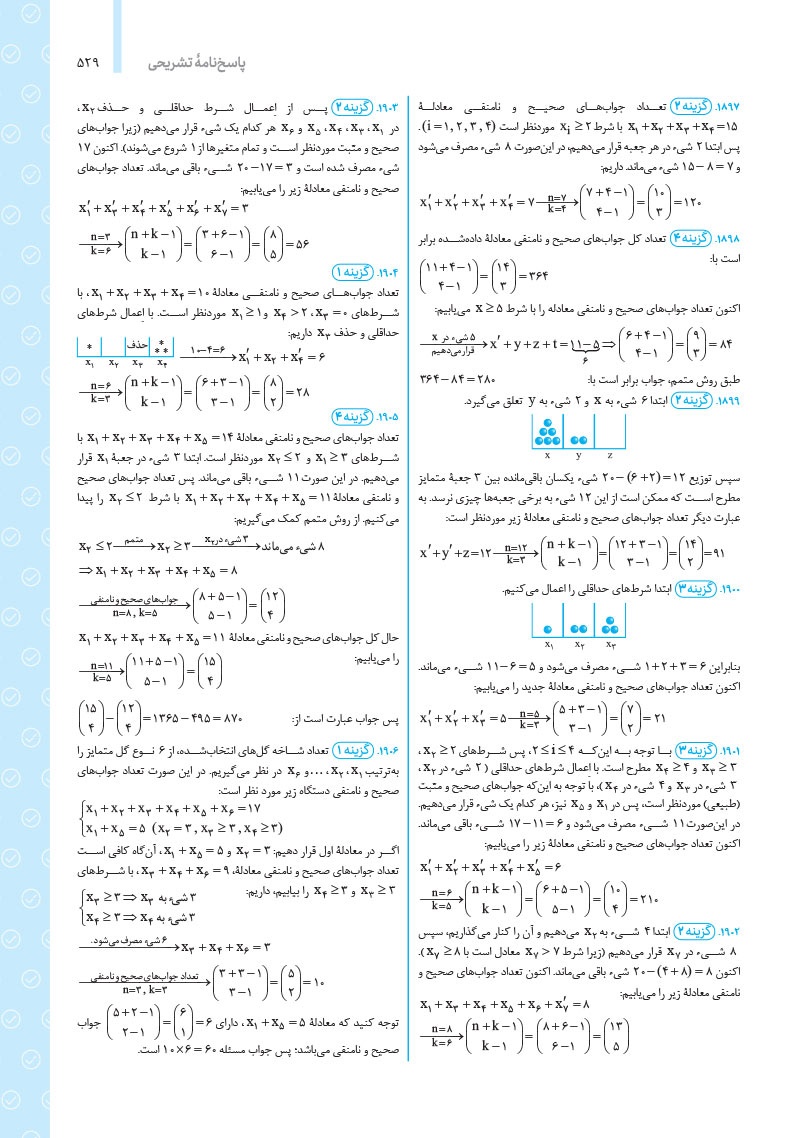 پاسخ‌نامهٔ تشریحی ۵۲۹
۱۸۹۷. گزینه ۲ تعـداد جواب‌هـای صحیـح و نامنفـی معادلـهٔ
x₁+x₂+x₃+x₄=۱۵ با شرط xᵢ ≥ ۲ موردنظر است (i=۱, ۲, ۳, ۴).
پس ابتدا ۲ شیء در هر جعبه قرار می‌دهیم، در این‌صورت ۸ شیء مصرف می‌شود
و ۷ = ۸ − ۱۵ شیء می‌ماند. داریم:
x′₁+x′₂+x′₃+x′₄ = ۷ —n=۷, k=۴→ (۷+۴−۱ / ۴−۱) = (۱۰ / ۳) = ۱۲۰
۱۸۹۸. گزینه ۴ تعداد کل جواب‌های صحیح و نامنفی معادلهٔ داده‌شده برابر
است با:
(۱۱+۴−۱ / ۴−۱) = (۱۴ / ۳) = ۳۶۴
اکنون تعداد جواب‌های صحیح و نامنفی معادله را با شرط x ≥ ۵ می‌یابیم:
—۵ شیء در x قرار می‌دهیم→ x′+y+z+t = ۱۱−۵ (۶) ⇒ (۶+۴−۱ / ۴−۱) = (۹ / ۳) = ۸۴
طبق روش متمم، جواب برابر است با: ۳۶۴−۸۴ = ۲۸۰
۱۸۹۹. گزینه ۲ ابتدا ۶ شیء به x و ۲ شیء به y تعلق می‌گیرد.
x y z
سپس توزیع ۲۰−(۶+۲) = ۱۲ شیء یکسان باقی‌مانده بین ۳ جعبهٔ متمایز
مطرح اسـت که ممکن است از این ۱۲ شیء به برخی جعبه‌ها چیزی نرسد. به
عبارت دیگر تعداد جواب‌های صحیح و نامنفی معادلهٔ زیر موردنظر است:
x′+y′+z=۱۲ —n=۱۲, k=۳→ (n+k−۱ / k−۱) = (۱۲+۳−۱ / ۳−۱) = (۱۴ / ۲) = ۹۱
۱۹۰۰. گزینه ۳ ابتدا شرط‌های حداقلی را اعمال می‌کنیم.
x₁ x₂ x₃
بنابراین ۶ = ۳+۲+۱ شـیء مصرف می‌شود و ۵ = ۶ − ۱۱ شـیء می‌ماند.
اکنون تعداد جواب‌های صحیح و نامنفی معادلهٔ جدید را می‌یابیم:
x′₁+x′₂+x′₃ = ۵ —n=۵, k=۳→ (۵+۳−۱ / ۳−۱) = (۷ / ۲) = ۲۱
۱۹۰۱. گزینه ۳ بـا توجه بـه این‌کـه ۲ ≤ i ≤ ۴، پس شـرط‌های x₂ ≥ ۲،
x₃ ≥ ۳ و x₄ ≥ ۴ مطرح است. با اِعمال شرط‌های حداقلی (۲ شیء در x₂،
۳ شیء در x₃ و ۴ شیء در x₄)، با توجه به این‌که جواب‌های صحیح و مثبت
(طبیعی) موردنظر است، پس در x₁ و x₅ نیز، هر کدام یک شیء قرار می‌دهیم.
در این‌صورت ۱۱ شـیء مصرف می‌شود و ۶ = ۱۱ − ۱۷ شـیء باقی می‌ماند.
اکنون تعداد جواب‌های صحیح و نامنفی معادلهٔ زیر را می‌یابیم:
x′₁+x′₂+x′₃+x′₄+x′₅ = ۶
—n=۶, k=۵→ (n+k−۱ / k−۱) = (۶+۵−۱ / ۵−۱) = (۱۰ / ۴) = ۲۱۰
۱۹۰۲. گزینه ۲ ابتدا ۴ شـیء به x₂ می‌دهیم و آن را کنار می‌گذاریم، سپس
۸ شـیء در x₇ قرار می‌دهیم (زیرا شرط x₇ > ۷ معادل است با x₇ ≥ ۸).
اکنون ۲۰−(۴+۸) = ۸ شیء باقی می‌ماند. اکنون تعداد جواب‌های صحیح و
نامنفی معادلهٔ زیر را می‌یابیم:
x₁+x₃+x₄+x₅+x₆+x′₇ = ۸
—n=۸, k=۶→ (n+k−۱ / k−۱) = (۸+۶−۱ / ۶−۱) = (۱۳ / ۵)
۱۹۰۳. گزینه ۲ پـس از اِعمـال شـرط حداقلـی و حـذف x₂،
در x₁، x₃، x₄، x₅ و x₆ هر کدام یک شیء قرار می‌دهیم (زیرا جواب‌های
صحیح و مثبت موردنظر اسـت و تمام متغیرها از ۱ شروع می‌شوند). اکنون ۱۷
شیء مصرف شده است و ۳ = ۱۷ − ۲۰ شـیء باقی می‌ماند. تعداد جواب‌های
صحیح و نامنفی معادلهٔ زیر را می‌یابیم:
x′₁+x′₃+x′₄+x′₅+x′₆+x′₇ = ۳
—n=۳, k=۶→ (n+k−۱ / k−۱) = (۳+۶−۱ / ۶−۱) = (۸ / ۵) = ۵۶
۱۹۰۴. گزینه ۱
تعداد جواب‌هـای صحیح و نامنفـی معادلهٔ x₁+x₂+x₃+x₄=۱۰، با
شـرط‌های x₃ = ۰، x₄ > ۲ و x₁ ≥ ۱ موردنظر اسـت. با اِعمال شرط‌های
حداقلی و حذف x₃ داریم:
* حذف * * *
x₁ x₂ x₃ x₄
—۱۰−۴=۶→ x′₁+x₂+x′₄ = ۶
—n=۶, k=۳→ (n+k−۱ / k−۱) = (۶+۳−۱ / ۳−۱) = (۸ / ۲) = ۲۸
۱۹۰۵. گزینه ۴
تعداد جواب‌های صحیح و نامنفی معادلهٔ x₁+x₂+x₃+x₄+x₅ = ۱۴ با
شـرط‌های x₁ ≥ ۳ و x₂ ≤ ۲ موردنظر است. ابتدا ۳ شیء در جعبهٔ x₁ قرار
می‌دهیم. در این صورت ۱۱ شـیء باقی می‌ماند. پس تعداد جواب‌های صحیح
و نامنفی معادلهٔ x₁+x₂+x₃+x₄+x₅ = ۱۱ با شرط x₂ ≤ ۲ را پیدا
می‌کنیم. از روش متمم کمک می‌گیریم:
x₂ ≤ ۲ —متمم→ x₂ ≥ ۳ —۳ شیء در x₂→ ۸ شیء می‌ماند
⇒ x₁+x₂+x₃+x₄+x₅ = ۸
—جواب‌های صحیح و نامنفی n=۸, k=۵→ (۸+۵−۱ / ۵−۱) = (۱۲ / ۴)
حال کل جواب‌های صحیح و نامنفی معادلهٔ x₁+x₂+x₃+x₄+x₅ = ۱۱
را می‌یابیم:
—n=۱۱, k=۵→ (۱۱+۵−۱ / ۵−۱) = (۱۵ / ۴)
پس جواب عبارت است از: (۱۵ / ۴) − (۱۲ / ۴) = ۱۳۶۵−۴۹۵ = ۸۷۰
۱۹۰۶. گزینه ۱ تعداد شـاخه گل‌های انتخاب‌شـده، از ۶ نـوع گل متمایز را
به‌ترتیب x₁، x₂، ... و x₆ در نظر می‌گیریم. در این صورت تعداد جواب‌های
صحیح و نامنفی دستگاه زیر مورد نظر است:
x₁+x₂+x₃+x₄+x₅+x₆ = ۱۷
x₁+x₅ = ۵ (x₂ = ۳, x₃ ≥ ۳, x₄ ≥ ۳)
اگـر در معادلهٔ اول قرار دهیم: x₂ = ۳ و x₁+x₅ = ۵، آن‌گاه کافی اسـت
تعداد جواب‌های صحیح و نامنفی معادلهٔ، x₃+x₄+x₆ = ۹، با شـرط‌های
x₃ ≥ ۳ و x₄ ≥ ۳ را بیابیم، داریم:
x₃ ≥ ۳ ⇒ ۳ شیء به x₃
x₄ ≥ ۳ ⇒ ۳ شیء به x₄
—۶ شیء مصرف می‌شود.→ x₃+x₄+x₆ = ۳
—تعداد جواب‌های صحیح و نامنفی n=۳, k=۳→ (۳+۳−۱ / ۳−۱) = (۵ / ۲) = ۱۰
توجه کنید که معادلهٔ x₁+x₅ = ۵، دارای (۵+۲−۱ / ۲−۱) = (۶ / ۱) = ۶ جواب
صحیح و نامنفی می‌باشد؛ پس جواب مسئله ۱۰×۶ = ۶۰ است.